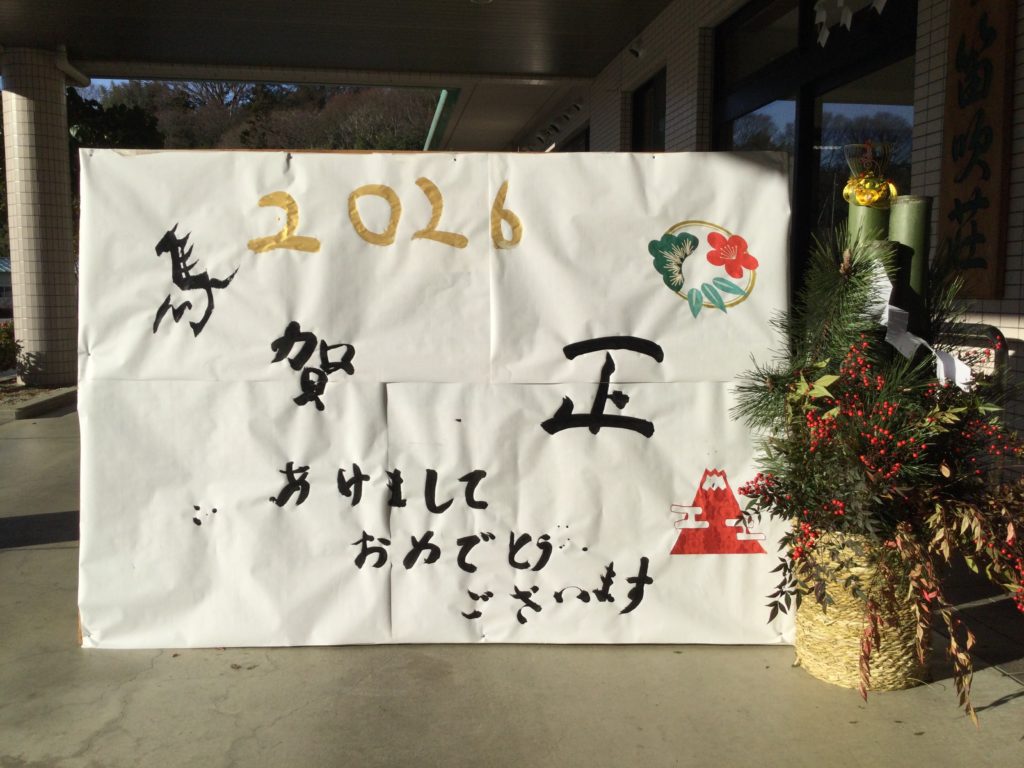 2026
馬
賀正
あけまして
おめでとう
ございます
笛吹荘